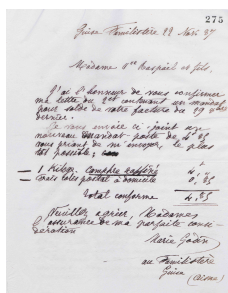 275
Guise Familistère 29 Nov. 87
Madame Vve Raspail et fils,
J'ai l'honneur de vous confirmer
ma lettre du 2 contenant un mandat
pour solde de votre facture du 29
dernier.
Je vous envoie ci joint un
nouveau mandat poste de 4f 85
vous priant de m'envoyer le plus
tôt possible:
1 Kilogr. Camphre raffiné 4 "
Frais colis postal à domicile 0,85
Total conforme 4,85
Veuillez agréer, Mesdames
l'assurance de ma parfaite consi-
dération
Marie Godin
au Familistère
Guise (Aisne)